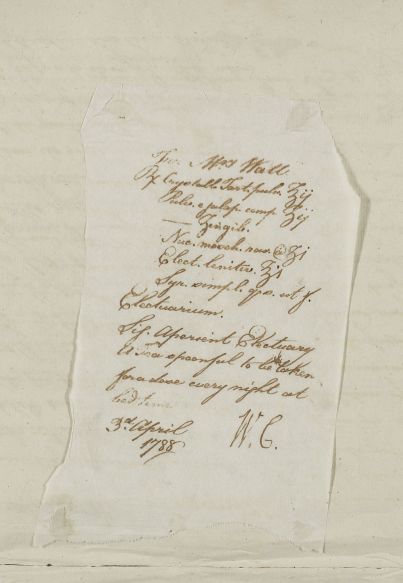 For Mrs Wall
℞ Crystall. Tart. pulv. ʒij
Pulv. e jalap. comp. ʒij
— Zingib.
Nuc. mosch. aa ʒj
Elect. lenitiv. ℥j
Syr. simpl. q.s. ut f.
Electuarium.
Sig. Aperient Electuary
A tea spoonful to be taken
for a dose every night at
bed time
3rd April
1788
W. C.